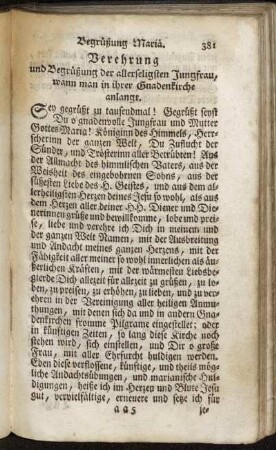 Begrüßung Mariä. 381
Verehrung
und Begrüßung der allerseligsten Jungfrau,
wann man in ihrer Gnadenkirche
anlangt.
Sey gegrüßt zu tausendmal! Gegrüßt seyst
Du o gnadenvolle Jungfrau und Mutter
Gottes Maria! Königinn des Himmels, Herr-
scherinn der ganzen Welt, Du Zuflucht der
Sünder, und Trösterinn aller Betrübten! Aus
der Allmacht des himmlischen Vaters, aus der
Weisheit des eingebohrnen Sohns, aus der
süßesten Liebe des H. Geistes, und aus dem al-
lerheiligsten Herzen deines Jesu sowohl, als aus
dem Herzen aller deiner HH. Diener und Die-
nerinnen grüße und bewillkomme, lobe und prei-
se, liebe und verehre ich Dich in meinem und
der ganzen Welt Namen, mit der Ausbreitung
und Andacht meines ganzen Herzens, mit der
Fähigkeit aller meiner so wohl innerlichen als äu-
ßerlichen Kräften, mit der wärmesten Liebsbe-
gierde Dich allezeit für allzeit zu grüßen, zu lo-
ben, zu preisen, zu erhöhen, zu lieben, und zu ver-
ehren in der Vereinigung aller heiligen Anmu-
thungen, mit denen sich da und in andern Gna-
denkirchen fromme Pilgrame eingestellet; oder
in künftigen Zeiten, so lang diese Kirche noch
stehen wird, sich einstellen, und Dir o große
Frau, mit aller Ehrfurcht huldigen werden.
Eben diese verflossene, künftige, und theils mög-
liche Andachtsübungen, und marianische Hul-
digungen, heiße ich im Herzen und Blute Jesu
gut, vervielfältige, erneure und setze ich für
a a 5 je-